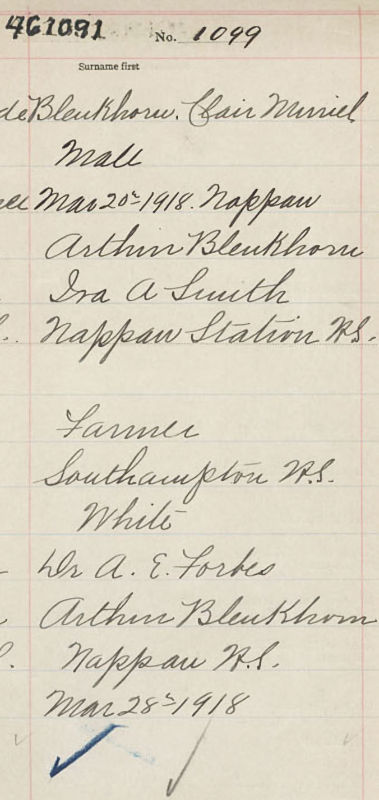 461091
No. 1099
Surname first
de Blenkhorn. Clair Murriel
Male
Mar 20th 1918. Nappan
Arthur Blenkhorn
Ira A Smith
Nappan Station N.S.
Farmer
Southampton N.S.
White
Dr A. E. Forbes
Arthur Blenkhorn
Nappan N.S.
Mar 28th 1918